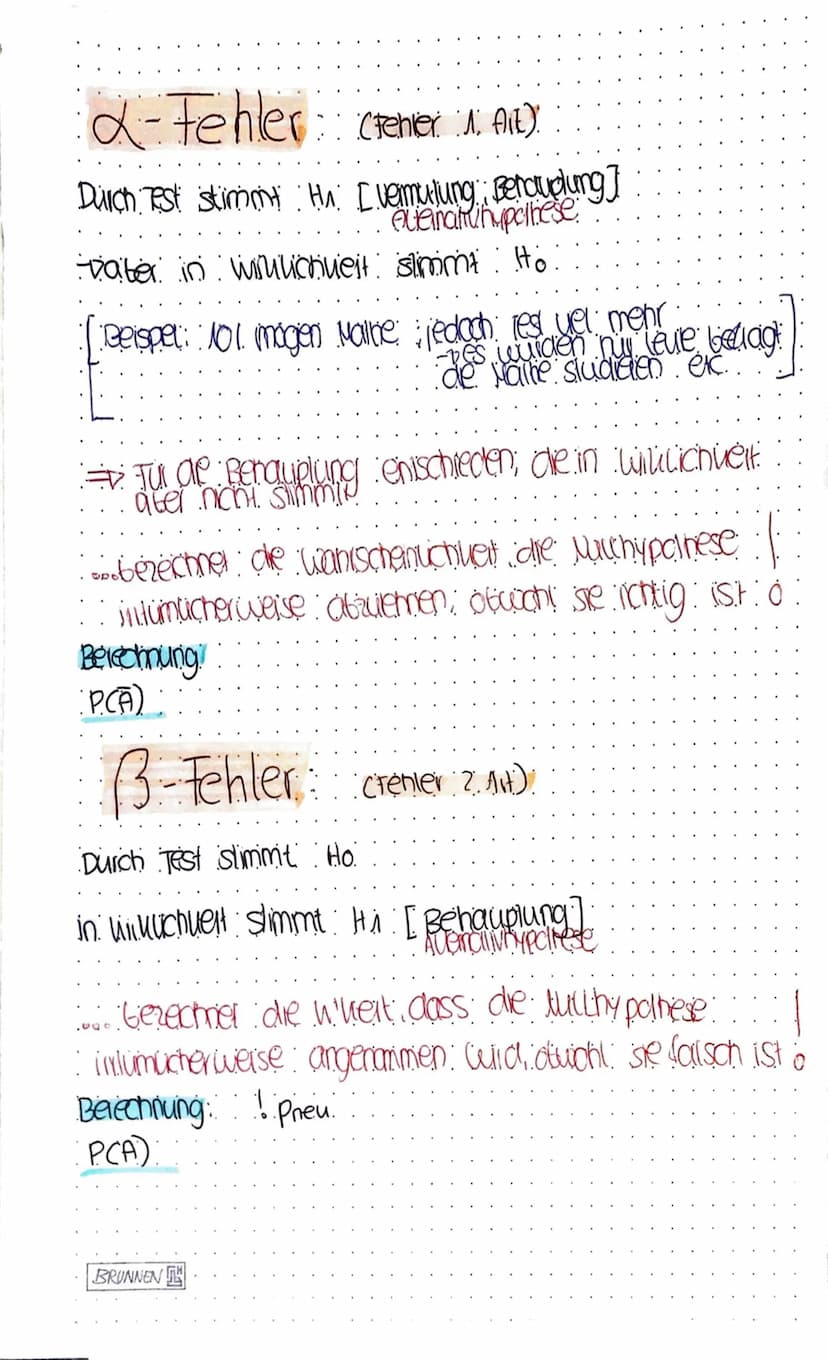 α-Fehler: (Fehler 1. Art)
Durch Test stimmt H1 [Vermutung, Behauptung]
Alternativhypothese
→ aber in Wirklichkeit stimmt H0
[Beispiel: 101 mögen Mathe, jedoch Test viel mehr
→ es wurden nur Leute befragt
die Mathe studieren etc]
⇒ Für die Behauptung entschieden, die in Wirklichkeit
aber nicht stimmt
...berechnet die Wahrscheinlichkeit die Nullhypothese
irrtümlicherweise abzulehnen, obwohl sie richtig ist!
Berechnung:
P(Ā)
β-Fehler: (Fehler 2. Art)
Durch Test stimmt H0
in Wirklichkeit stimmt H1 [Behauptung]
Alternativhypothese
...berechnet die W'keit, dass die Nullhypothese
irrtümlicherweise angenommen wird, obwohl sie falsch ist!
Berechnung: ! Pneu
P(A)
BRUNNEN